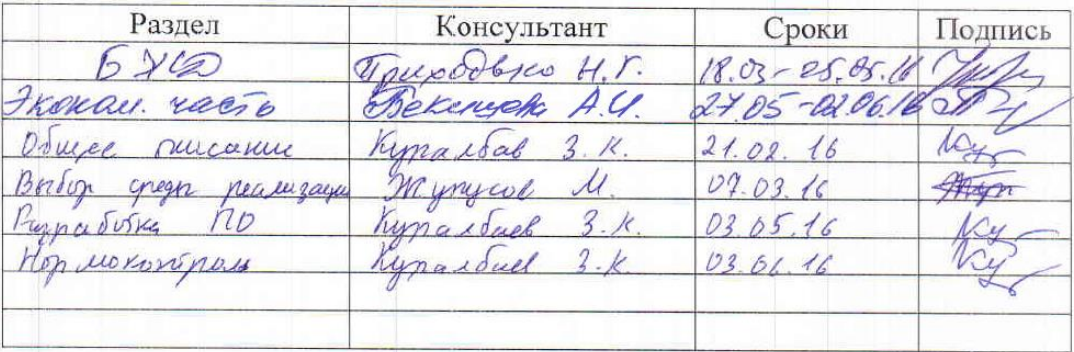 Раздел Консультант Сроки Подпись
БЖД Приходько Н.Г. 18.03-25.05.16
Эконом. часть Бекишева А.И. 27.05-02.06.16
Общее описание Куралбаев З.К. 21.02.16
Выбор среды реализации Жунусов М. 07.03.16
Разработка ПО Куралбаев З.К. 03.05.16
Нормоконтроль Куралбаев З.К. 03.06.16